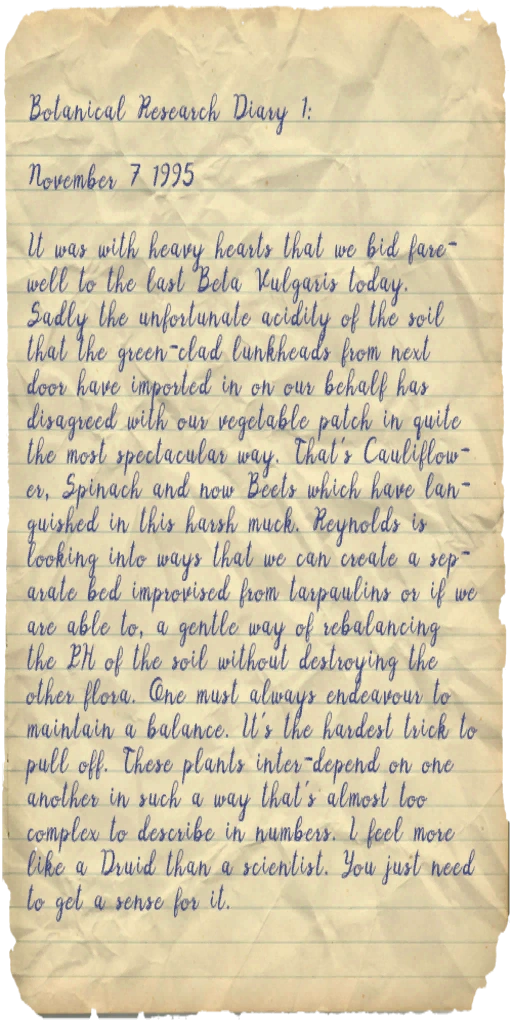 Botanical Research Diary 1:
November 7 1995
It was with heavy hearts that we bid fare-
well to the last Beta Vulgaris today.
Sadly the unfortunate acidity of the soil
that the green-clad lunkheads from next
door have imported in on our behalf has
disagreed with our vegetable patch in quite
the most spectacular way. That's Cauliflow-
er, Spinach and now Beets which have lan-
guished in this harsh muck. Reynolds is
looking into ways that we can create a sep-
arate bed improvised from tarpaulins or if we
are able to, a gentle way of rebalancing
the PH of the soil without destroying the
other flora. One must always endeavour to
maintain a balance. It's the hardest trick to
pull off. These plants inter-depend on one
another in such a way that's almost too
complex to describe in numbers. I feel more
like a Druid than a scientist. You just need
to get a sense for it.